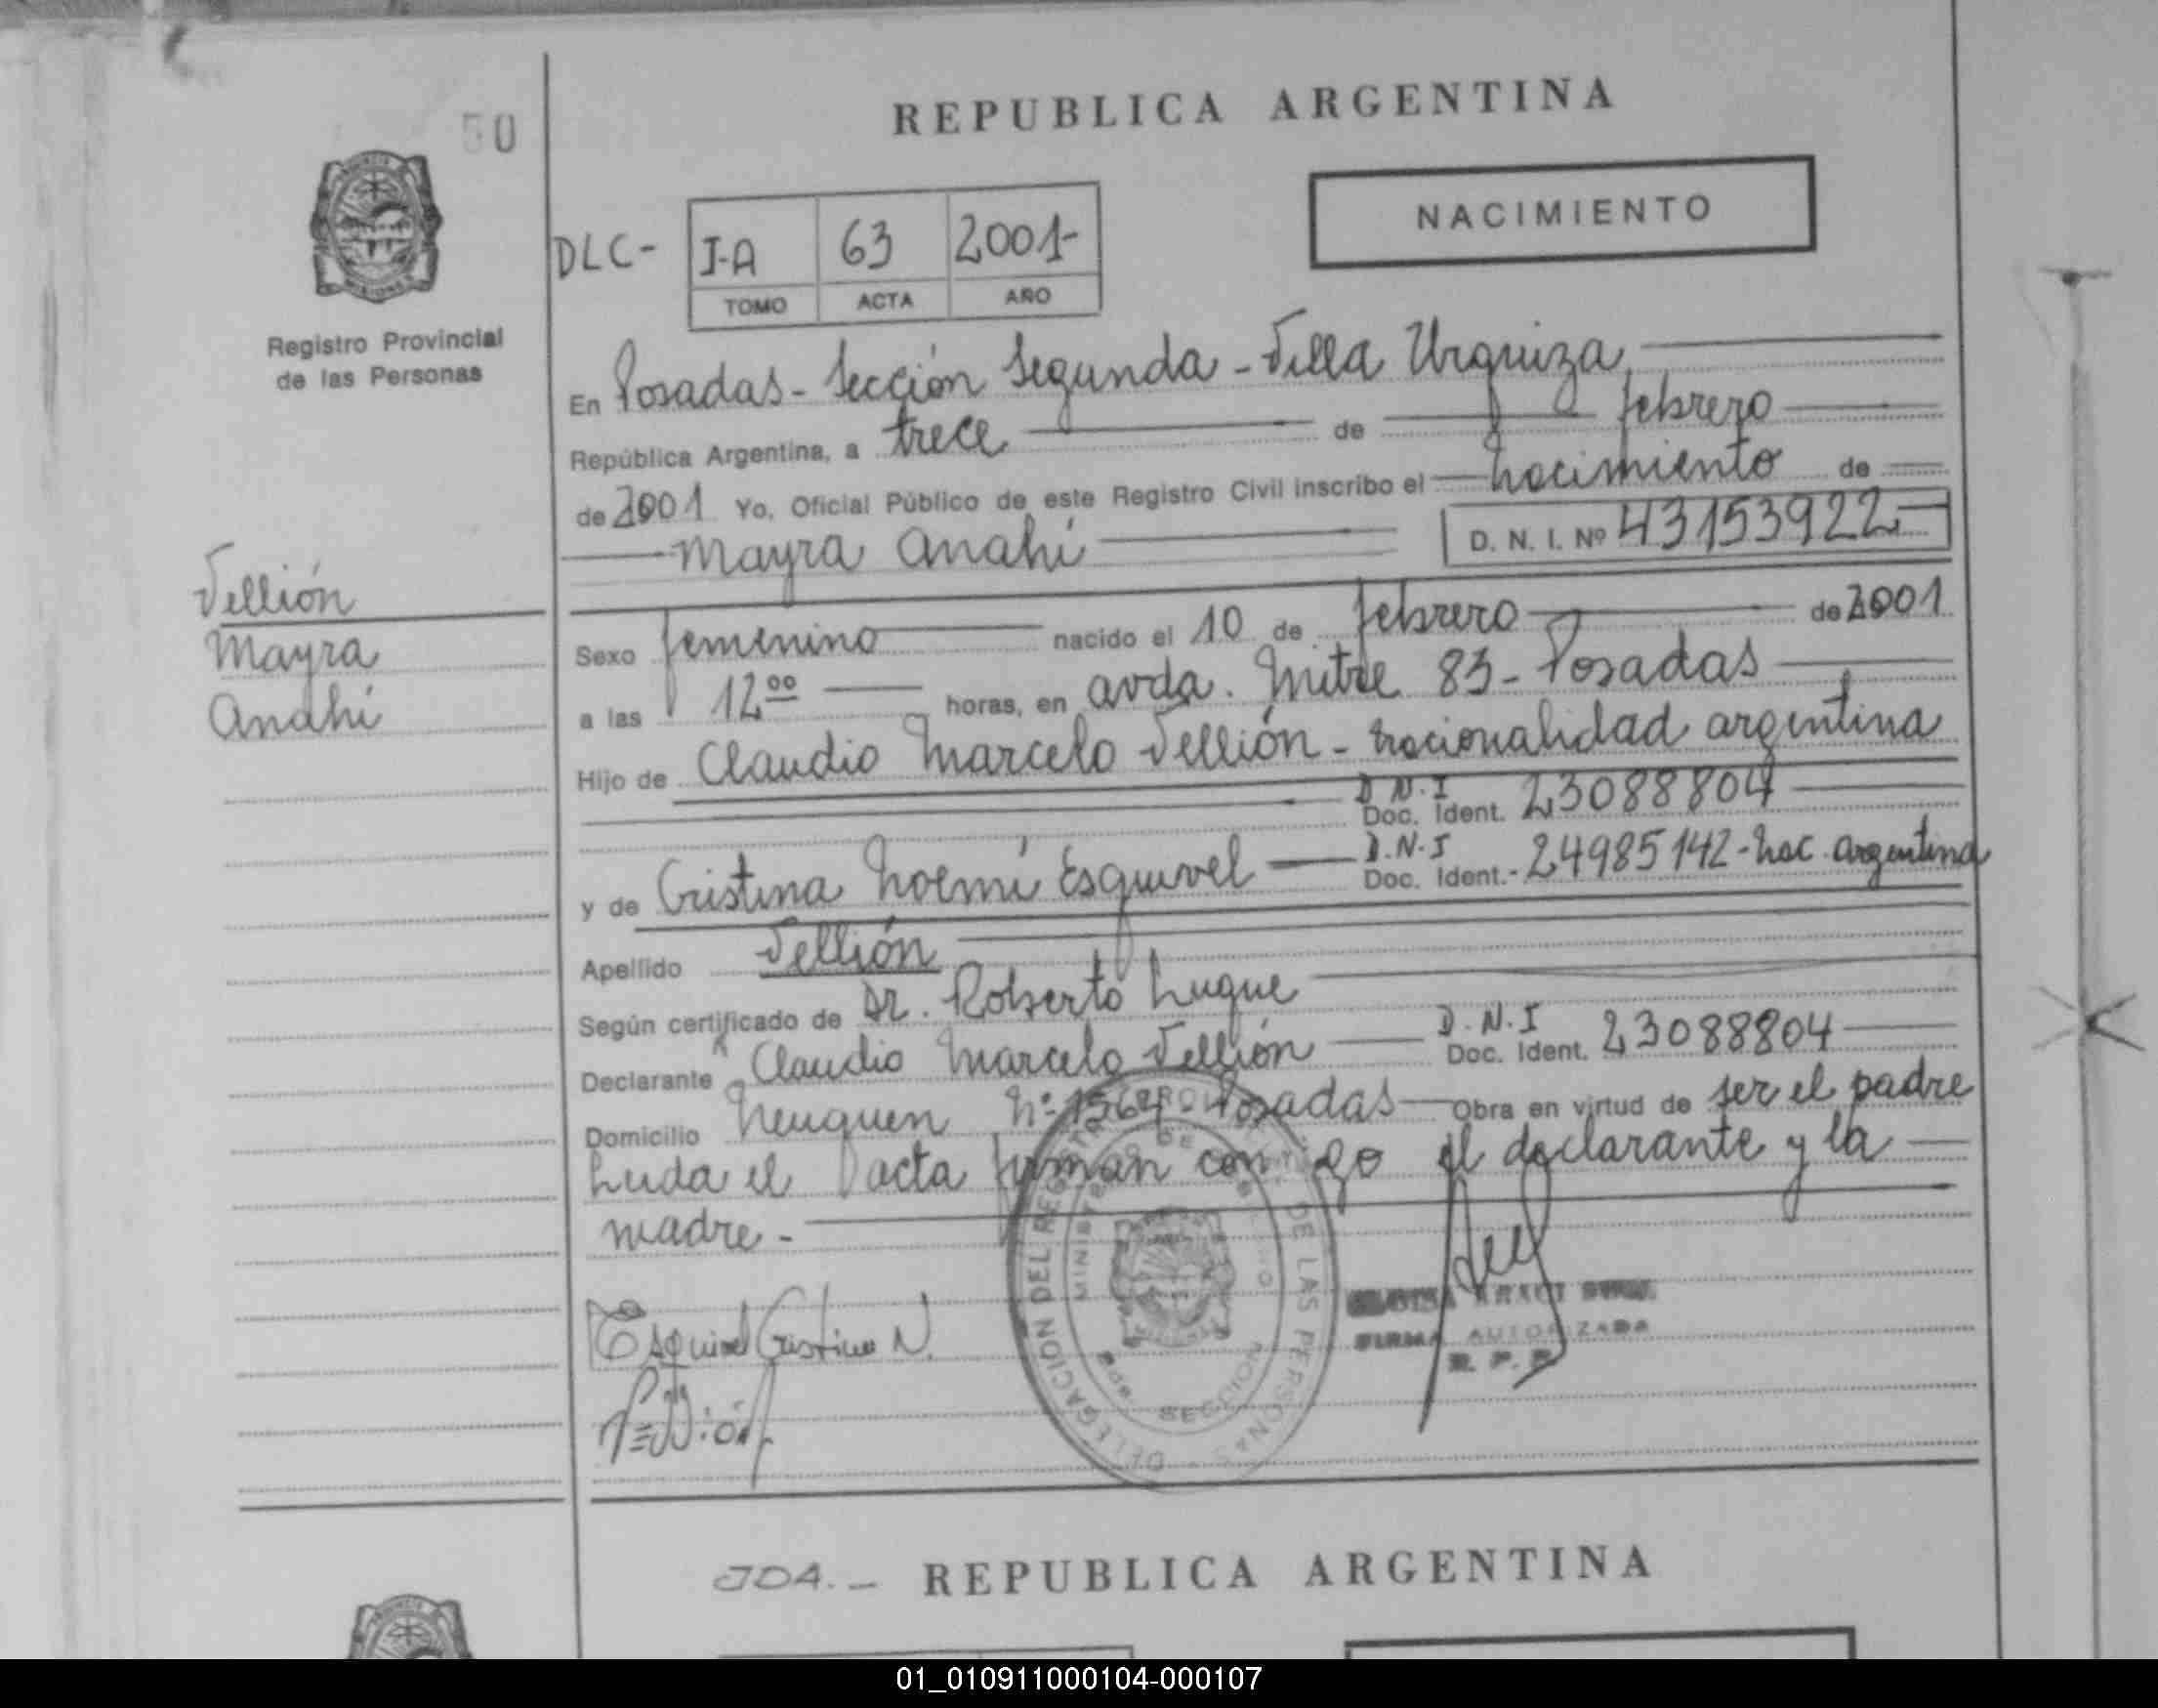 50
REPUBLICA ARGENTINA
NACIMIENTO
DLC- I-A 63 2001-
TOMO ACTA AÑO
Registro Provincial
de las Personas
En Posadas - Sección Segunda - Villa Urquiza
República Argentina, a trece de febrero
de 2001 Yo, Oficial Público de este Registro Civil inscribo el nacimiento de
Mayra Anahí D. N. I. Nº 43153922
Vellión
Mayra
Anahí
Sexo femenino nacido el 10 de febrero de 2001
a las 12 00 horas, en Avda. Mitre 83 - Posadas
Hijo de Claudio Marcelo Vellión - nacionalidad argentina
D N.I
Doc. Ident. 23088804
D.N.I
y de Cristina Noemí Esquivel Doc. Ident.- 24985142 - nac. argentina
Apellido Vellión
Según certificado de Dr. Roberto Luque
D.N.I
Declarante Claudio Marcelo Vellión Doc. Ident. 23088804
Domicilio Neuquen Nº 1564 - Posadas Obra en virtud de ser el padre
Leida el acta firman conmigo el declarante y la
madre -
Esquivel Cristina N.
Vellión
DELEGACION DEL REGISTRO DE LAS PERSONAS
MINISTERIO DE GOBIERNO
SECCION
FIRMA AUTORIZADA
R. P. P.
JDA.- REPUBLICA ARGENTINA
01_010911000104-000107